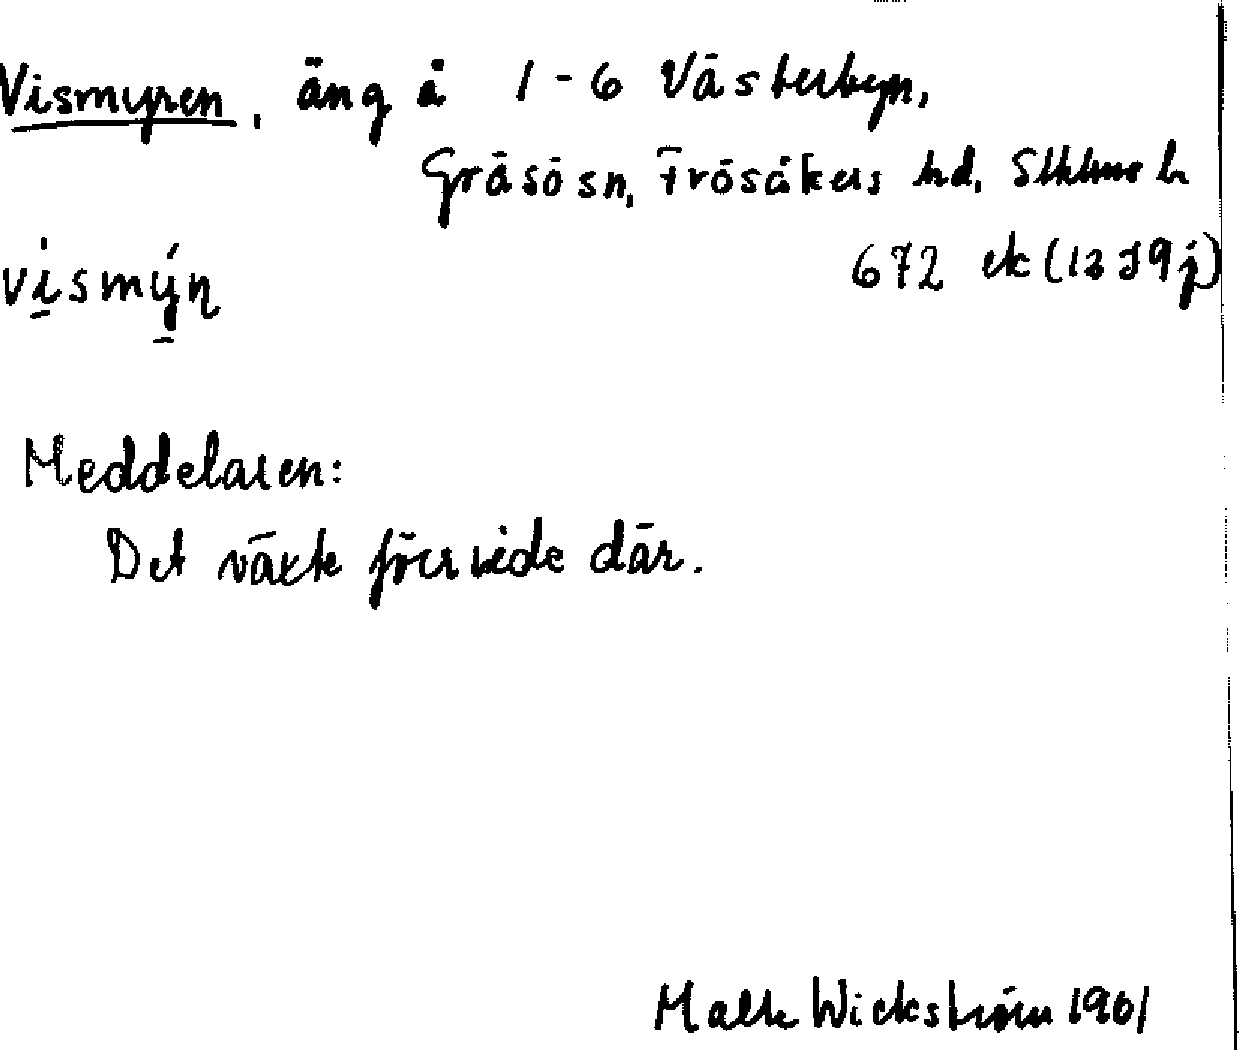 Vismyren, äng å 1-6 Västerbyn,
Gräsö sn, Frösåkers hd, Sthlms l.
vismýn
672 ek (13 I 9 j)
Meddelaren:
Det växte förr vide där.
Malte Wickström 1961